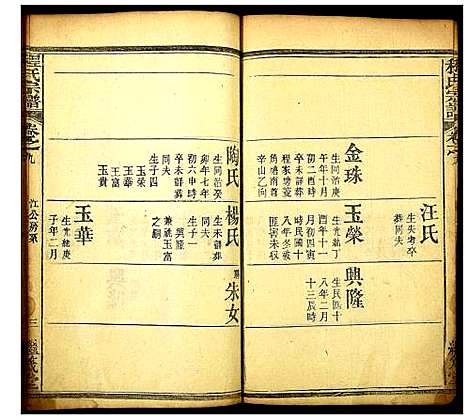 汪氏
生失考卒
葬同夫
金珠
生同治庚
午年十月
初二酉時
程家塝菱
角墩南首
辛山乙向
玉榮
生光緒丁
酉年十一
月初四寅
時民國十
八年冬被
匪害未收
興隆
生民國十
八年二月
十三辰時
陶氏
生同治癸
卯年七年
初六申時
卒未詳葬
同夫
生子四
玉榮
玉富
玉貴
楊氏
生未詳葬
同夫
生子一
興隆
兼祧玉富
之嗣
朱女
玉華
生光緒庚
子年二月
程氏宗譜
卷之九
江公房系
三
繼述堂